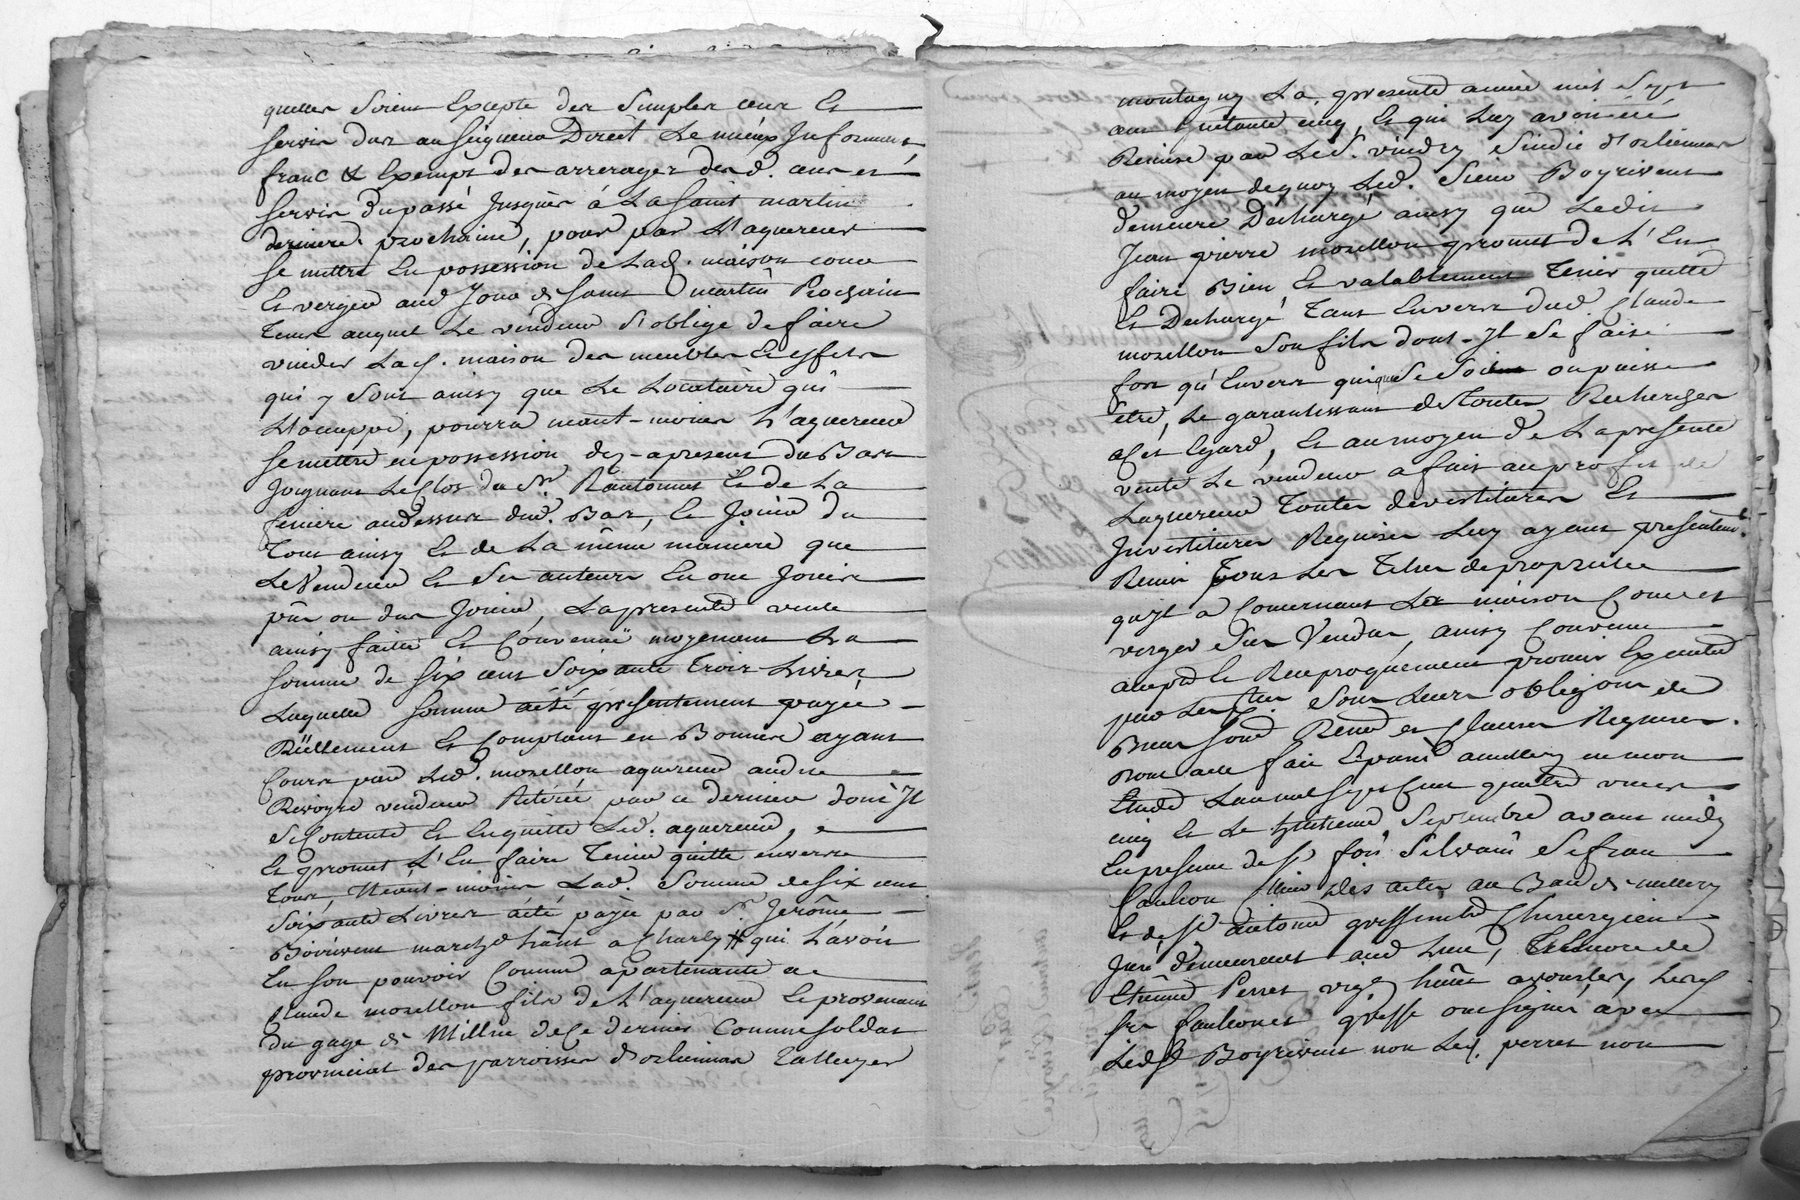 quelles soient Excepté des simples cens Et
servis dus au seigneur Direct Le mieux Informant,
franc & Exempt des arrerages desd. cens et
servis du passé Jusques á La saint martin
derniere. prochaine, pour par L'aquereur
se mettre En possession de Lad. maison cour
Et verger aud Jour de saint martin Prochain
tems auquel Le vendeur s'oblige de faire
vuider Lad. maison des meubles Et effets
qui y sont ainsy que Le Locataire qui
L'occuppe, pourra neant-moins L'aquereur
se mettre en possession dez-apresent du Bas
Joignant Le Clos du Sr. Rantonnet Et de La
feniere audessus dud. Bas, Et Jouir du
Tout ainsy Et de La même maniere que
Le Vendeur Et ses auteurs En ont Jouis
pû ou dus Jouir, La presente vente
ainsy faitte Et Convenuë moyenant La
somme de six cent soixante trois Livres
Laquelle somme a été presentement payée
Réellement Et Comptant en Bonnes ayant
Cours par Led. mozellon aquereur audit
Revoyre vendeur Retirée par ce dernier dont Il
se Contente Et En quitte Led. aquereur,
Et promet L'En faire Tenir quitte envers
Tous, Neant-moins Lad. somme de six cent
soixante Livres a été payée par Sr. Jerôme
Boirivent marchd hânt a Charly # qui L'avoit
En son pouvoir Comme apartenante a
Claude mozellon fils de L'aquereur Et provenant
du gage de Millice de Ce dernier Comme soldat
provincial des parroisses d'orlienas Taluyer
montagny La presente année mil sept
cent huitante cinq, Et qui Luy avoit été
Remise par Led. Sr. vindry sindic d'orlienas
au moyen dequoy Led. sieur Boyrivent
demeure Déchargé ainsy que Ledit
Jean pierre mozellon promet de L'En
faire Bien Et valablement Tenir quitte
Et Dechargé Tant Envers dud. Claude
mozellon son fils dont-Il se fait
fort qu'Envers qui que se soit ou puisse
être, Le garantissant de Toutes Recherches
a Cet Egard, Et au moyen de La presente
vente Le vendeur a fait au profit de
Laquereur Toutes devestitures Et
Investitures Requises Luy ayant presentemt.
Remis Tous Les Titres de proprietée
qu'Il a Concernant La maison Cour et
verger sus Vendus, ainsy Convenu
accepté Et Reciproquement promis Executé
par Les Ptes sous Leurs obligaons de
Biens soumd Renond et Clauses Requises.
Dont acte fait Et passé a millery en mon
Etude L'an mil sept Cent quatre vingt
cinq Et Le huitieme septembre avant midy
En presence de Sr. fois silvain sefran
faulcon Commis Des actes au Bau de millery
Et de Sr. antoine greffe me Chirurgien
Juré demeurant aud Lieu, Et Encore de
Etienne Perret vign hânt a vourles, Lesd
srs faulcon et greffe ont signé avec
Led Sr Boyrivent non Led. perret non